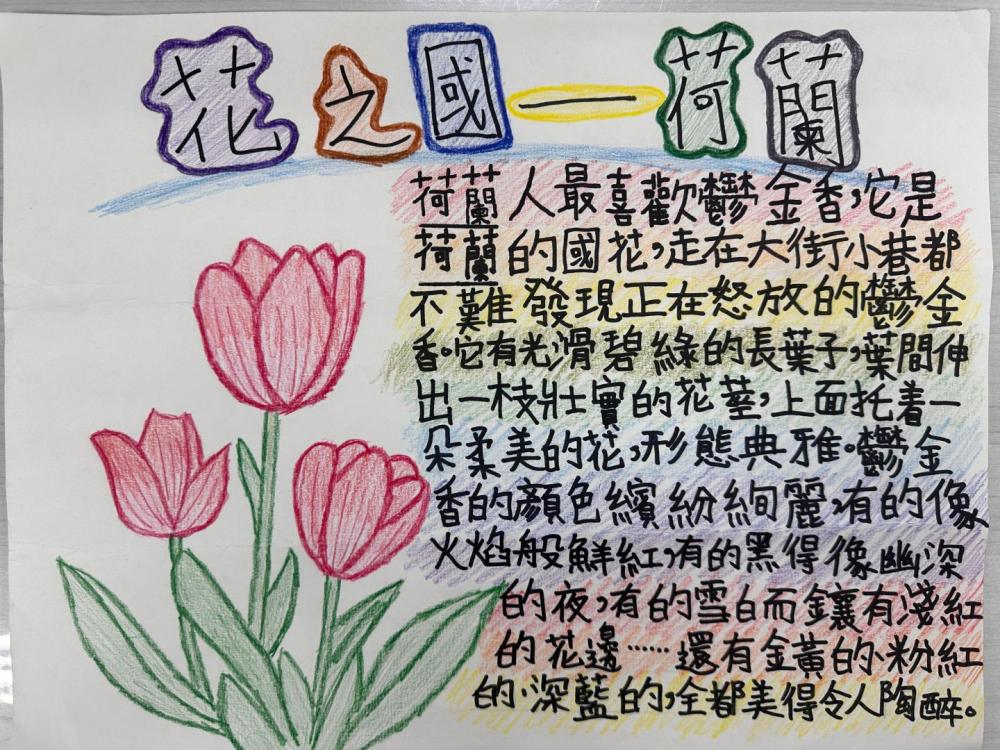 花之國——荷蘭
荷蘭人最喜歡鬱金香,它是
荷蘭的國花,走在大街小巷都
不難發現正在怒放的鬱金
香。它有光滑碧綠的長葉子,葉間伸
出一枝壯實的花莖,上面托着一
朵柔美的花,形態典雅。鬱金
香的顏色繽紛絢麗,有的像
火焰般鮮紅,有的黑得像幽深
的夜,有的雪白而鑲有淺紅
的花邊……還有金黃的、粉紅
的、深藍的,全都美得令人陶醉。